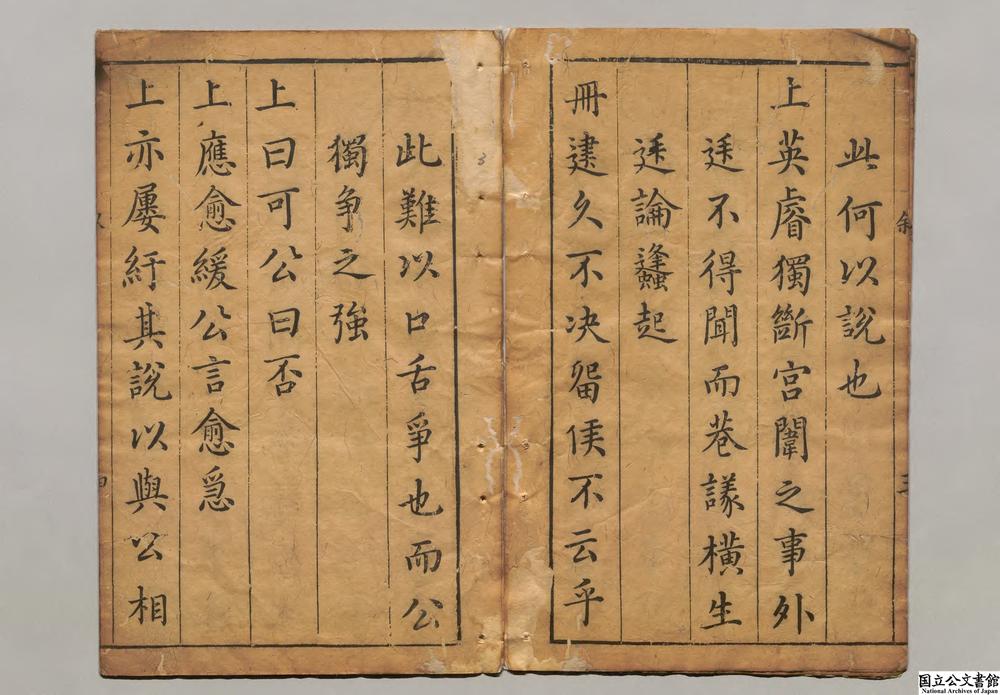 此何以說也
上英睿獨斷宮闈之事外
廷不得聞而巷議橫生
廷論蠭起
冊建久不决畱侯不云乎
此難以口舌爭也而公
獨争之強
上曰可公曰否
上應愈緩公言愈急
上亦屢紓其說以與公相
国立公文書館
National Archives of Japan